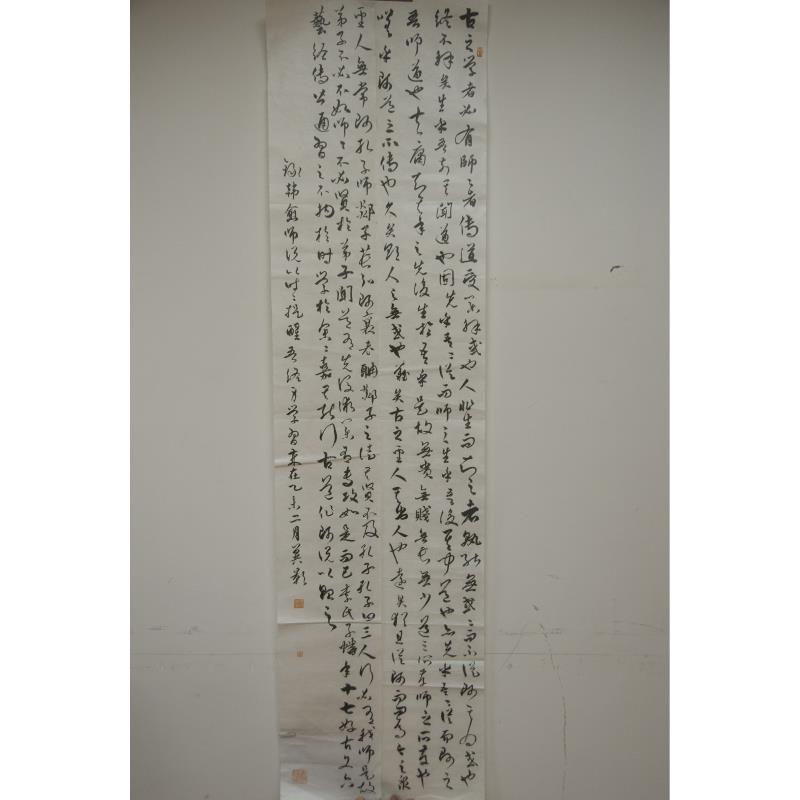 古之学者必有師〻者傳道受業解惑也人非生而知之者孰能無惑〻而不從師其為惑也
終不解矣生乎吾前其聞道也固先乎吾〻從而師之生乎吾後其聞道也亦先乎吾〻從而師之
吾師道也夫庸知其年之先後生於吾乎是故無貴無賤無長無少道之所存師之所存也
嗟乎師道之不傳也久矣欲人之無惑也難矣古之聖人其出人也遠矣猶且從師而問焉今之眾
聖人無常師孔子師郯子萇弘師襄老聃郯子之徒其賢不及孔子孔子曰三人行必有我師是故
弟子不必不如師〻不必賢於弟子聞道有先後術業有專攻如是而已李氏子蟠年十七好古文六
藝經傳皆通習之不拘於時学於余〻嘉其能行古道作師说以貽之
錄韓愈師说以時〻提醒吾終身学習歲在乙未二月莫影